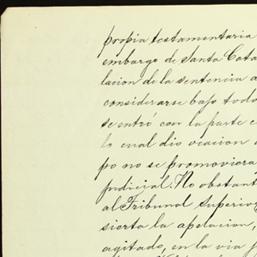 propia testamentaria
embargo de Santa Cata
lacion de la sentencia a
considerarse bajo todo
se entró con la parte c
lo cual dio ocacion a
po no se promoviera
judicial. No obstant
al Tribunal Superior
sierta la apelacion,
agitado, en la via j